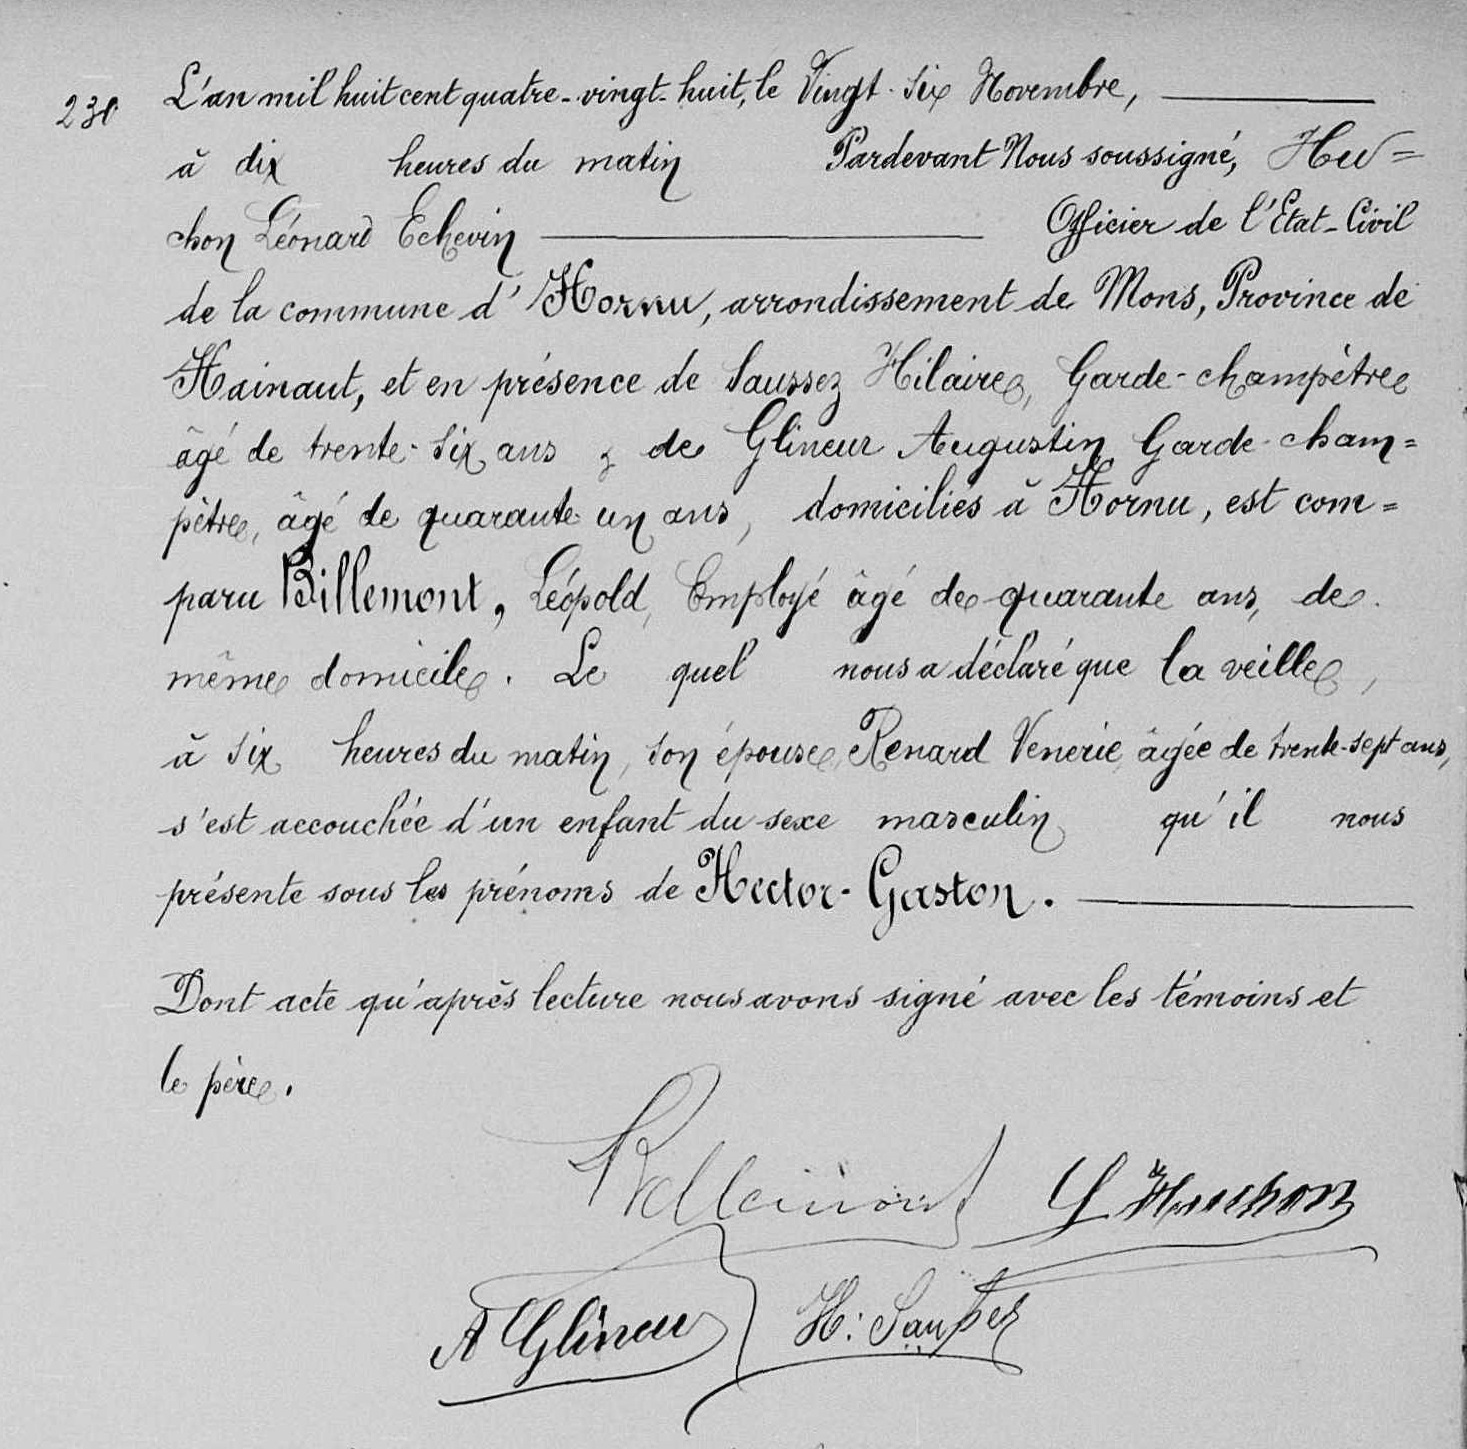 230 L'an mil huit cent quatre-vingt-huit, le Vingt-Six Novembre,
à dix heures du matin Pardevant Nous soussigné, Hu=
chon Léonard Echevin Officier de l'Etat-Civil
de la commune d'Hornu, arrondissement de Mons, Province de
Hainaut, et en présence de Saussez Hilaire, Garde-champêtre
âgé de trente-six ans & de Glineur Augustin Garde-cham=
pêtre, âgé de quarante un ans, domiciliés à Hornu, est com=
paru Billemont, Léopold, Employé âgé de quarante ans, de
même domicile. Le quel nous a déclaré que la veille,
à six heures du matin, son épouse, Renard Venerie, âgée de trente-sept ans,
s'est accouchée d'un enfant du sexe masculin qu'il nous
présente sous les prénoms de Hector-Gaston.
Dont acte qu'après lecture nous avons signé avec les témoins et
le père.
Billemont L Huchon
A Glineur H: Saussez